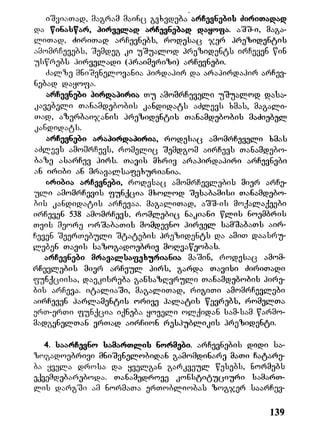 იშვიათად, მაგრამ მაინც გვხვდება არჩევნების ძირითადად
და წინასწარ, პირველად არჩევნებად დაყოფა. აშშ-ი, მაგა-
ლითად, ძირითად არჩევნებს, როდესაც ჯერ პრეზიდენტის
ამომრჩევებს, შემდეგ კი უშუალოდ პრეზიდენტს ირჩევენ წინ
უსწრებს პირველადი (პრაიმერიზი) არჩევნები.
ძალზე მნიშვნელოვანია პირდაპირ და არაპირდაპირ არჩევ-
ნებად დაყოფა.
არჩევნები პირდაპირია თუ ამომრჩეველი უშუალოდ დასა-
კავებელი თანამდებობის კანდიდატს აძლევს ხმას, მაგალი-
თად, აზერბაიჯანის პრეზიდენტის თანამდებობის მაძიებელ
კანდიდატს.
არჩევნები არაპირდაპირია, როდესაც ამომრჩეველი ხმას
აძლევს ამომრჩევს, რომელიც შემდგომ აირჩევს თანამდებო-
ბაზე ასარჩევ პირს. თავის მხრივ არაპირდაპირი არჩევნები
ან ირიბი ან მრავალსაფეხურიანია.
ირიბია არჩევნები, როდესაც ამომრჩევლების მიერ არჩე-
ული ამომრჩევის ფუნქცია მხოლოდ შესაბამისი თანამდებო-
ბის კანდიდატის არჩევაა. მაგალითად, აშშ-ის მოქალაქეები
ირჩევენ 538 ამომრჩევს, რომლებიც ნაკიანი წლის ნოემბრის
თვის მეორე ორშაბათის მომდევნო პირველ სამშაბათს აირ-
ჩევენ შეერთებული შტატების პრეზიდენტს და ამით დაასრუ-
ლებენ თავის საზოგადოებრივ მოღვაწეობას.
არჩევნები მრავალსაფეხურიანია მაშინ, როდესაც ამომ-
რჩევლების მიერ არჩეულ პირს, გარდა თავისი ძირითადი
ფუნქციისა, დაეკისრება განსაზღვრული თანამდებობის პირე-
ბის არჩევა. იტალიაში, მაგალითად, რიგითი ამომრჩევლები
აირჩევენ პარლამენტის ორივე პალატის წევრებს, რომელთა
ერთ-ერთი ფუნქცია იქნება ყოველი ოლქიდან სამ-სამ წარმო-
მადგენელთან ერთად აირჩიონ რესპუბლიკის პრეზიდენტი.
4. საარჩევნო სამართლის ნორმები. არჩევნების დიდი სა-
ზოგადოებრივი მნიშვნელობიდან გამომდინარე მათი ჩატარე-
ბა ყველა დროსა და ყველგან გარკვეულ წესებს, ნორმებს
ექვემდებარებოდა. თანამედროვე კონსტიტუციური სამართ-
ლის დარგში ამ ნორმათა ერთობლიობას ზოგჯერ საარჩევ-
139